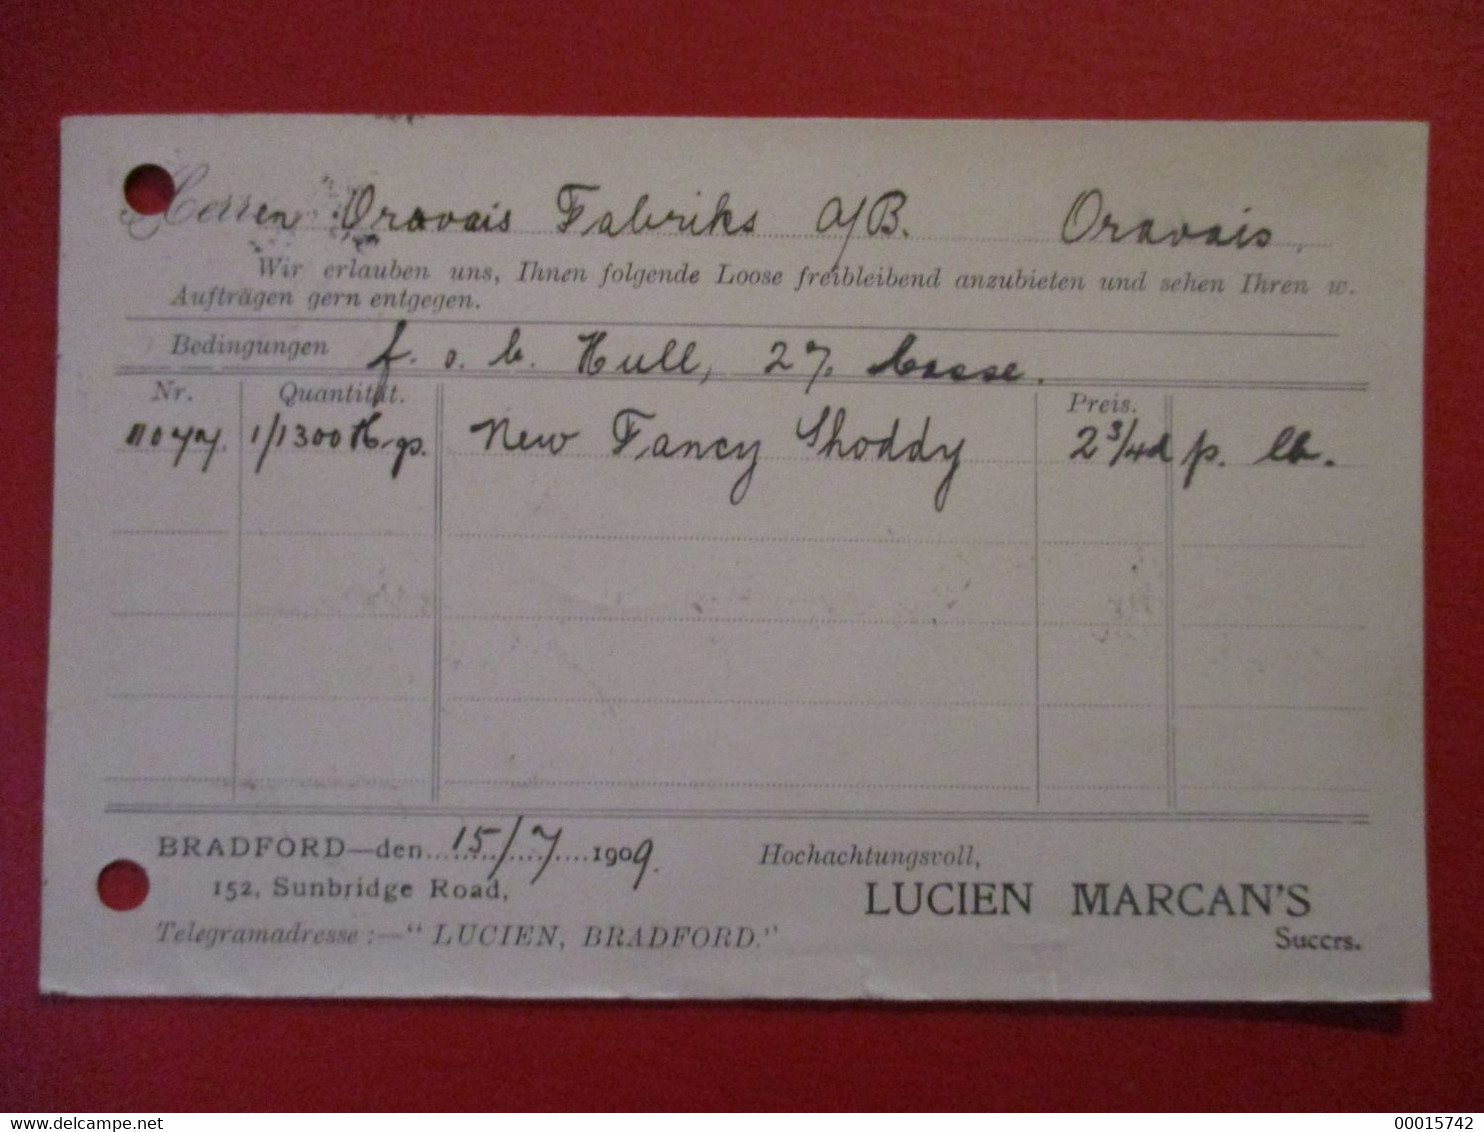 Herren Oravais Fabriks A/B. Oravais.
Wir erlauben uns, Ihnen folgende Loose freibleibend anzubieten und sehen Ihren w.
Aufträgen gern entgegen.
Bedingungen f. o. b. Hull, 2% Casse.
Nr. Quantität. Preis.
11077. 1/1300 Kgs. New Fancy Shoddy 2 3/4d p. lb.
BRADFORD—den 15/7 1909.
152, Sunbridge Road,
Hochachtungsvoll,
LUCIEN MARCAN'S
Succrs.
Telegramadresse:—"LUCIEN, BRADFORD."
delcampe.net
00015742